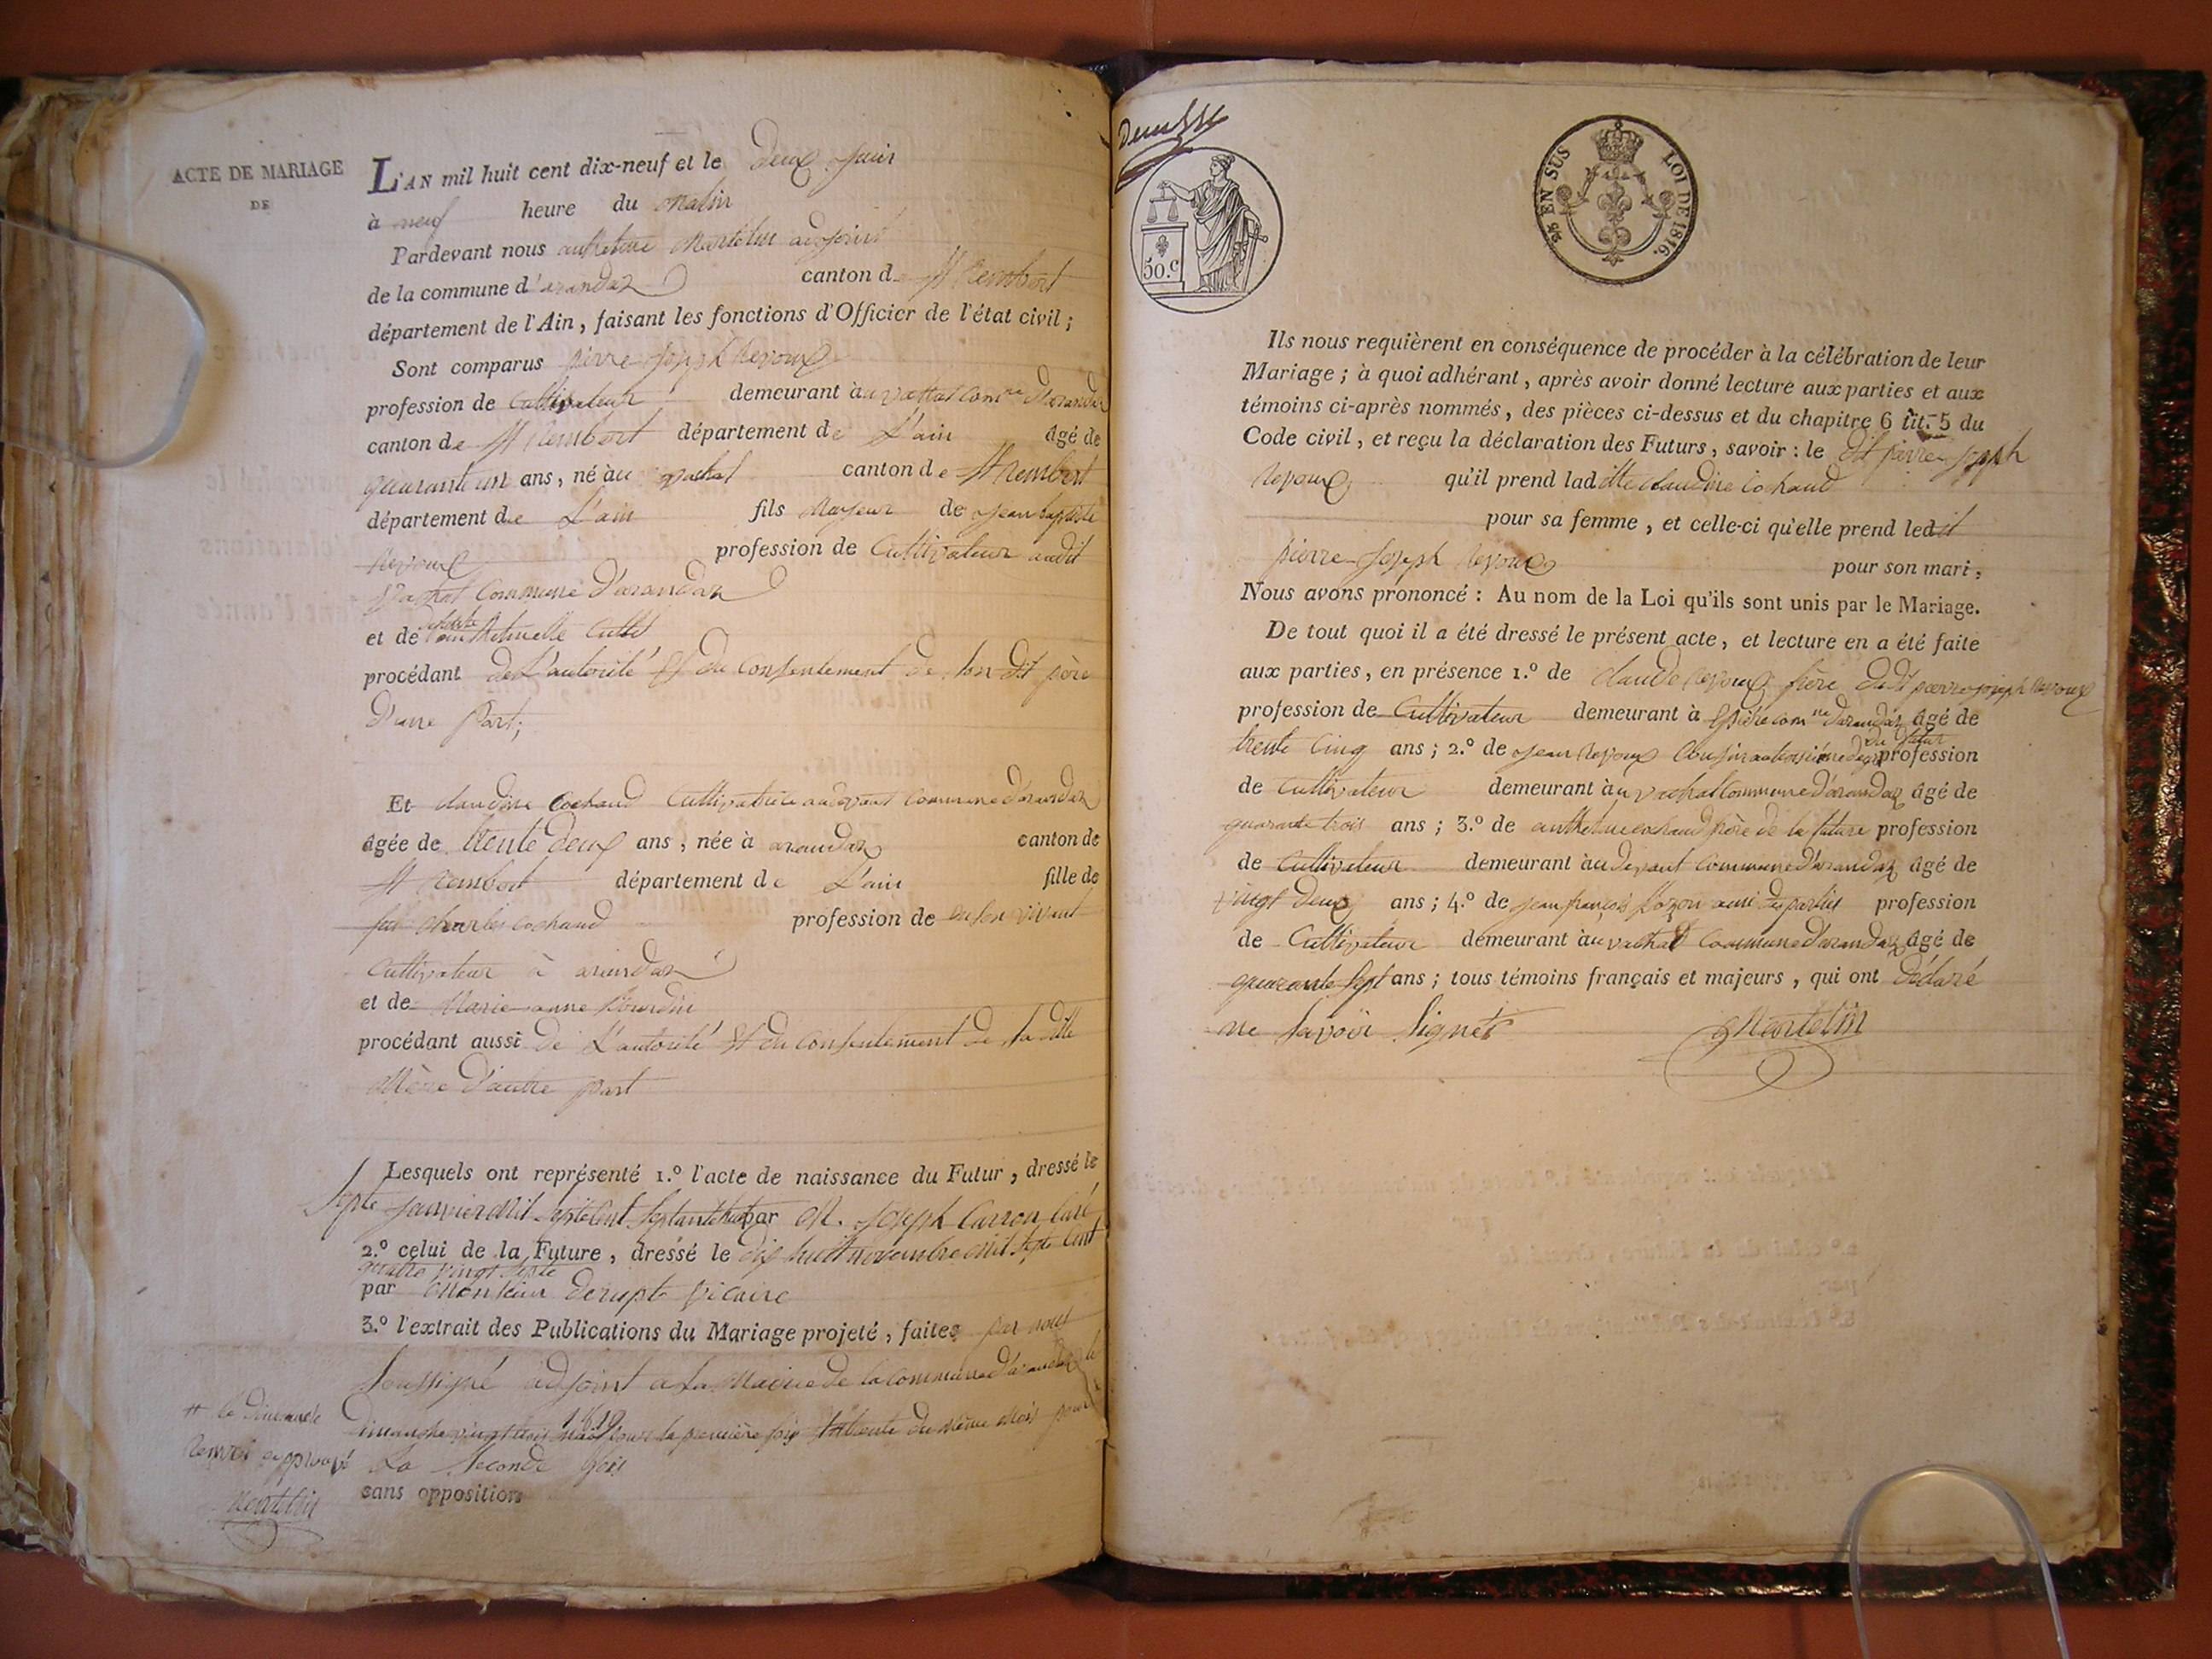 ACTE DE MARIAGE
DE
L'AN mil huit cent dix-neuf et le deux juin
à neuf heure du matin
Pardevant nous anthelme Martelin adjoint
de la commune d'arandaz canton de St Rembert
département de l'Ain, faisant les fonctions d'Officier de l'état civil ;
Sont comparus pierre joseph Reyoux
profession de Cultivateur demeurant à au vachat comne d'arandaz
canton de St Rembert département de L'ain âgé de
quarante un ans, né à au vachat canton de St Rembert
département de L'ain fils Majeur de jean baptiste
Reyoux profession de Cultivateur audit
Vachat Commune d'arandaz
et de anthelmette
procédant de L'autorité et du consentement de son dit père
D'une Part ;
Et claudine Cochand Cultivatrice au devant Commune d'arandaz
âgée de trente deux ans, née à arandaz canton de
St Rembert département de L'ain fille de
feu charles cochand profession de en son vivant
Cultivateur à arandaz
et de Marie anne Bourdin
procédant aussi de L'autorité et du consentement de sa ditte
Mère D'autre part
Lesquels ont représenté 1.º l'acte de naissance du Futur, dressé le
Septe janvier Mil Septe Cent Septante huit par M. joseph Carron Curé
2.º celui de la Future, dressé le dix huit novembre mil Septe Cent
quatre vingt Septe
par Monsieur derupt vicaire
3.º l'extrait des Publications du Mariage projeté, faites par nous
Soussigné adjoint a La Mairie de la commune d'arandaz le
dimanche vingt trois mai 1819 pour la première fois et # trente du Même Mois pour
La Seconde fois
sans opposition
# le dimanche
Renvoi approuvé
Martelin
50.c
25 EN SUS LOI DE 1816.
Ils nous requièrent en conséquence de procéder à la célébration de leur
Mariage ; à quoi adhérant, après avoir donné lecture aux parties et aux
témoins ci-après nommés, des pièces ci-dessus et du chapitre 6 tit. 5 du
Code civil, et reçu la déclaration des Futurs, savoir : le dit pierre joseph
Reyoux qu'il prend laditte claudine Cochand
pour sa femme, et celle-ci qu'elle prend ledit
pierre joseph Reyoux pour son mari,
Nous avons prononcé : Au nom de la Loi qu'ils sont unis par le Mariage.
De tout quoi il a été dressé le présent acte, et lecture en a été faite
aux parties, en présence 1.º de claude Reyoux frère dudit pierre joseph Reyoux
profession de Cultivateur demeurant à comne d'arandaz âgé de
trente Cinq ans ; 2.º de jean Reyoux Cousin au troisième degré du futur profession
de Cultivateur demeurant à au vachat Commune d'arandaz âgé de
quarante trois ans ; 3.º de anthelme cochand frère de la future profession
de Cultivateur demeurant à au devant Commune d'arandaz âgé de
vingt deux ans ; 4.º de jean françois ami des parties profession
de Cultivateur demeurant à au vachat Commune d'arandaz âgé de
quarante Sept ans ; tous témoins français et majeurs, qui ont déclaré
ne Savoir Signer Martelin